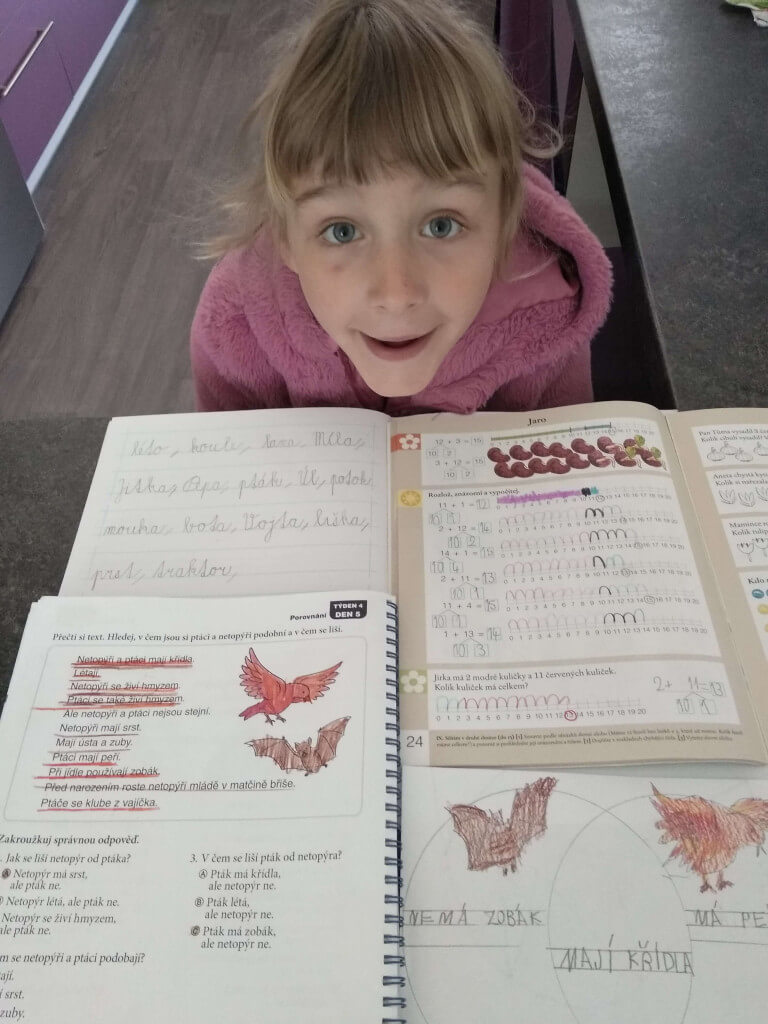 léto, koule, Mila,
Jitka, Pepa, pták, Úl, potok
mouka, bota, Vojta, liška,
prst, traktor,
Porovnání TÝDEN 4
DEN 5
Přečti si text. Hledej, v čem jsou si ptáci a netopýři podobní a v čem se liší.
Netopýři a ptáci mají křídla.
Létají.
Netopýři se živí hmyzem.
Ptáci se také živí hmyzem.
Ale netopýři a ptáci nejsou stejní.
Netopýři mají srst.
Mají ústa a zuby.
Ptáci mají peří.
Při jídle používají zobák.
Před narozením roste netopýří mládě v matčině břiše.
Ptáče se klube z vajíčka.
Zakroužkuj správnou odpověď.
. Jak se liší netopýr od ptáka?
A Netopýr má srst,
ale pták ne.
Netopýr létá, ale pták ne.
Netopýr se živí hmyzem,
ale pták ne.
m se netopýři a ptáci podobají?
ají.
í srst.
zuby.
3. V čem se liší pták od netopýra?
A Pták má křídla,
ale netopýr ne.
B Pták létá,
ale netopýr ne.
C Pták má zobák,
ale netopýr ne.
Jaro
12 + 3 = 15
10 2
3 + 12 = 15
10 2
Rozlož, znázorni a vypočítej.
11 + 1 = 12
10 1
2 + 12 = 14
10 2
14 + 1 = 15
10 4
2 + 11 = 13
10 1
11 + 4 = 15
10 1
1 + 13 = 14
10 3
Jirka má 2 modré kuličky a 11 červených kuliček.
Kolik kuliček má celkem?
2 + 11 = 13
10 1
0 1 2 3 4 5 6 7 8 9 10 11 12 13 14 15 16 17 18 19 20
24
Kolik
Kolik
NEMÁ ZOBÁK
MAJÍ KŘÍDLA
MÁ PE